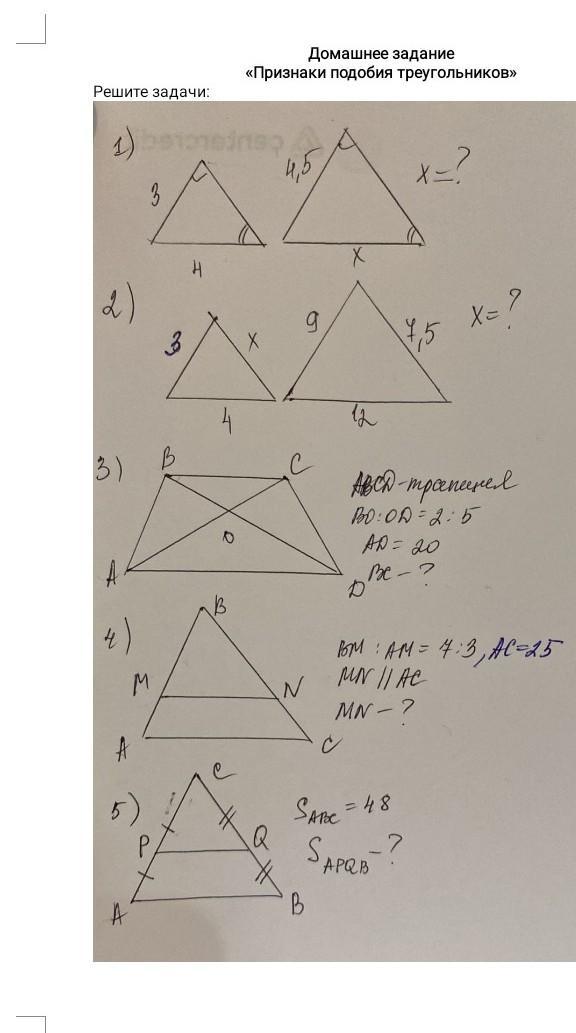 Домашнее задание
«Признаки подобия треугольников»
Решите задачи:
1)
3
4
4,5
x
x=?
2)
3
x
4
9
7,5
12
x=?
3)
B
C
O
A
D
ABCD-трапеция
BO:OD=2:5
AD=20
BC-?
4)
B
M
N
A
C
BM:AM=7:3, AC=25
MN||AC
MN-?
5)
C
P
Q
A
B
S ABC = 48
S APQB -?